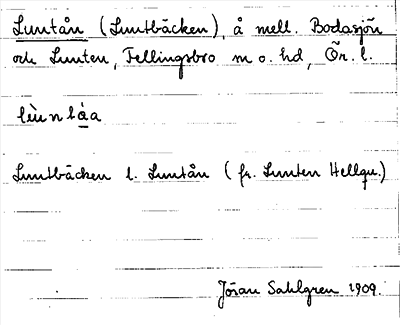 Luntån (Luntbäcken), å mell. Bodasjön
och Lunten, Fellingsbro sn o. hd, Ör. l.
Luntbäcken l. Luntån (fr. Lunten Hellqu.)
Jöran Sahlgren 1909.